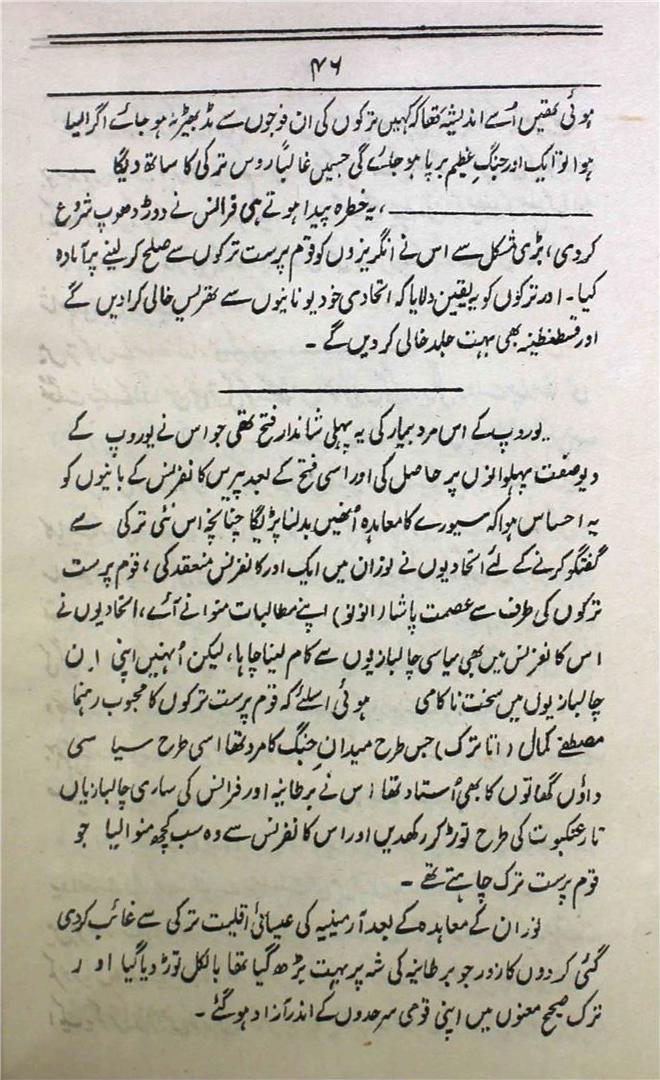 ۴۶
ہوئی تھیں اُسے اندیشہ تھا کہ کہیں ترکوں کی ان فوجوں سے مڈبھیڑ نہ ہو جائے اگر ایسا
ہوا تو ایک اور جنگِ عظیم برپا ہو جائے گی جسمیں غالباً روس ترکی کا ساتھ دیگا ——
——————، یہ خطرہ پیدا ہوتے ہی فرانس نے دوڑ دھوپ شروع
کردی، بڑی مشکل سے اس نے انگریزوں کو قوم پرست ترکوں سے صلح کر لینے پر آمادہ
کیا۔ اور ترکوں کو یہ یقین دلایا کہ اتحادی خود یونانیوں سے تھریس خالی کرادیں گے
اور قسطنطنیہ بھی بہت جلد خالی کر دیں گے۔
یوروپ کے اس مردِ بیمار کی یہ پہلی شاندار فتح تھی جو اس نے یوروپ کے
دیو صفت پہلوانوں پر حاصل کی اور اسی فتح کے بعد پیرس کانفرنس کے بانیوں کو
یہ احساس ہوا کہ سیورے کا معاہدہ اُنھیں بدلنا پڑیگا چنانچہ اس نئی ترکی سے
گفتگو کرنے کے لئے اتحادیوں نے لوزان میں ایک اور کانفرنس منعقد کی، قوم پرست
ترکوں کی طرف سے عصمت پاشا (انونو) اپنے مطالبات منوانے آئے، اتحادیوں نے
اس کانفرنس میں بھی سیاسی چالبازیوں سے کام لینا چاہا، لیکن اُنہیں اپنی ان
چالبازیوں میں سخت ناکامی ہوئی اسلئے کہ قوم پرست ترکوں کا محبوب رہنما
مصطفےٰ کمال (اتاترک) جس طرح میدانِ جنگ کا مرد تھا اسی طرح سیاسی
داؤں گھاتوں کا بھی اُستاد تھا اس نے برطانیہ اور فرانس کی ساری چالبازیاں
تارِ عنکبوت کی طرح توڑ کر رکھدیں اور اس کانفرنس سے وہ سب کچھ منوالیا جو
قوم پرست ترک چاہتے تھے۔
لوزان کے معاہدہ کے بعد آرمینیہ کی عیسائی اقلیت ترکی سے غائب کردی
گئی کردوں کا زور جو برطانیہ کی شہ پر بہت بڑھ گیا تھا بالکل توڑ دیا گیا اور
ترک صحیح معنوں میں اپنی قومی سرحدوں کے اندر آزاد ہو گئے۔